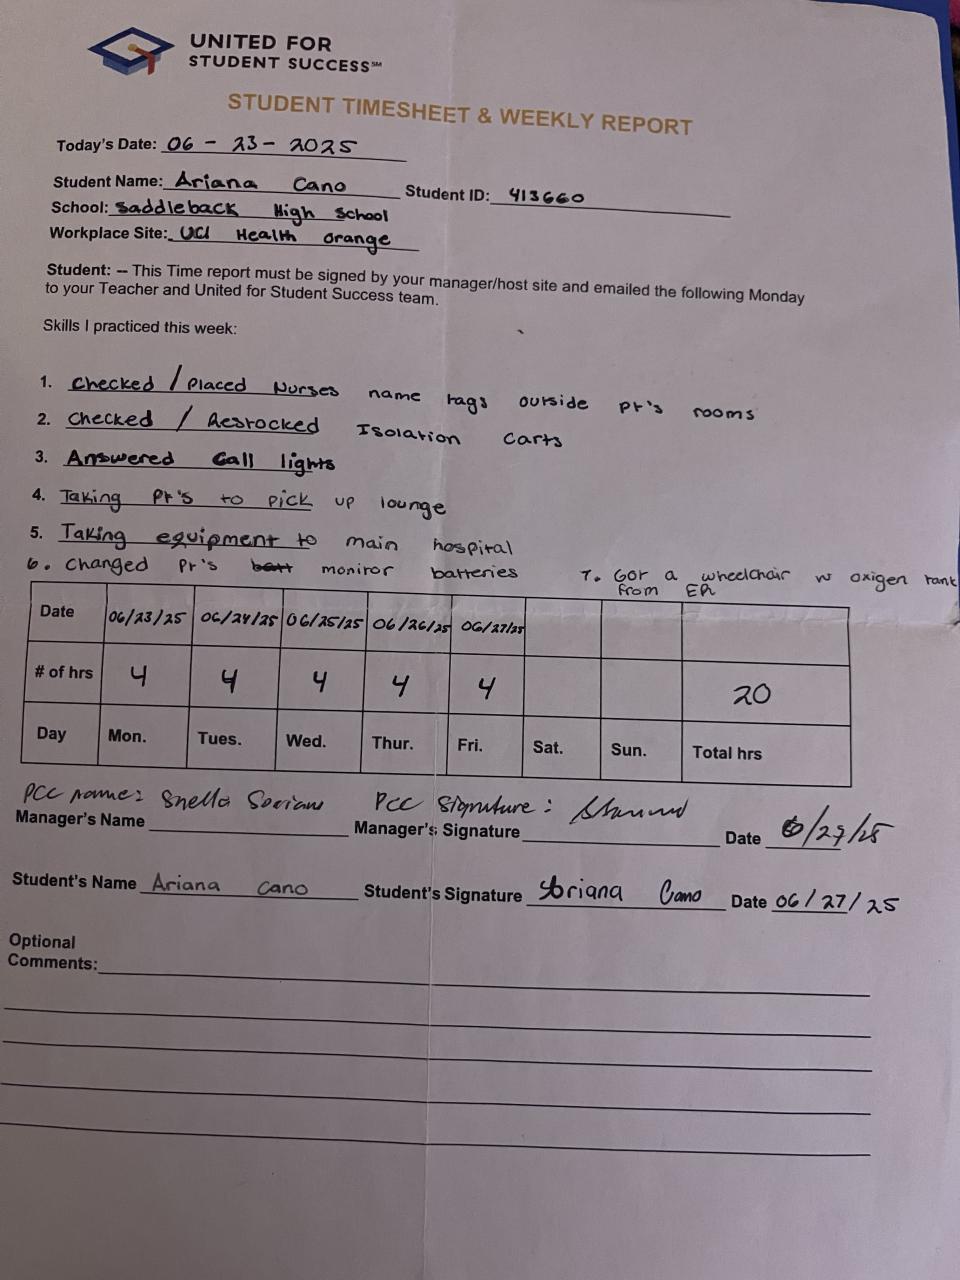 UNITED FOR
STUDENT SUCCESS℠
STUDENT TIMESHEET & WEEKLY REPORT
Today's Date: 06 - 23 - 2025
Student Name: Ariana Cano Student ID: 413660
School: Saddleback High School
Workplace Site: UCI Health Orange
Student: -- This Time report must be signed by your manager/host site and emailed the following Monday
to your Teacher and United for Student Success team.
Skills I practiced this week:
1. Checked / Placed Nurses name tags outside pt's rooms
2. Checked / Restocked Isolation Carts
3. Answered Call lights
4. Taking Pt's to pick up lounge
5. Taking equipment to main hospital
6. Changed Pt's monitor batteries 7. Got a wheelchair w oxigen tank
from ER
Date 06/23/25 06/24/25 06/25/25 06/26/25 06/27/25
# of hrs 4 4 4 4 4 20
Day Mon. Tues. Wed. Thur. Fri. Sat. Sun. Total hrs
PCC name: PCC Signature:
Manager's Name Manager's Signature Date
Student's Name Ariana Cano Student's Signature Ariana Cano Date 06/27/25
Optional
Comments: